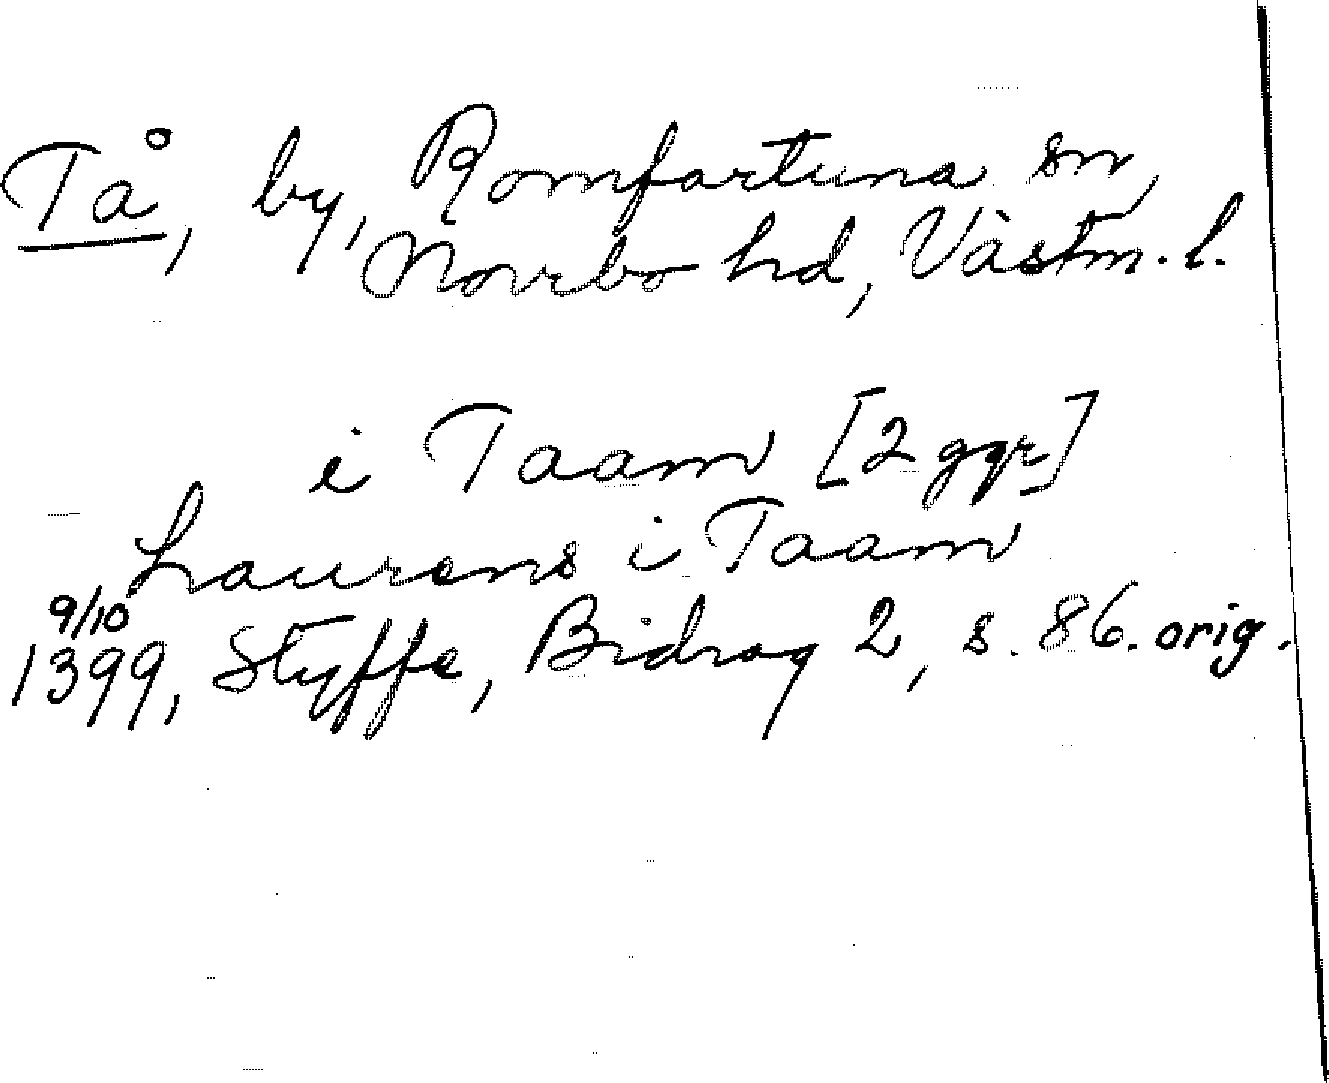 Tå, by, Romfartuna sn,
Norrbo hd, Västm. l.
i Taam [2 ggr]
Laurens i Taam
9/10
1399, Styffe, Bidrag 2, s. 86. orig.